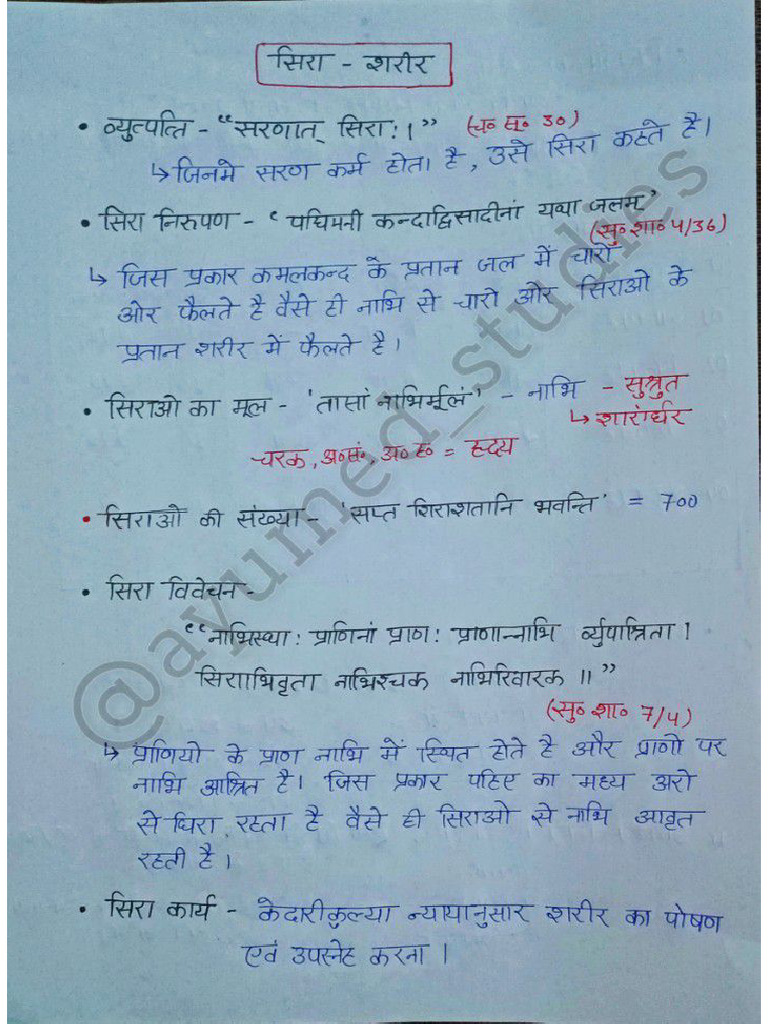 सिरा - शरीर
• व्युत्पत्ति - “सरणात् सिराः।” (च० सू० 30)
↳ जिनमे सरण कर्म होता है, उसे सिरा कहते है।
• सिरा निरुपण - ‘पद्मिनी कन्दाद्विसादीनां यथा जलम्’
(सु० शा० 4/36)
↳ जिस प्रकार कमलकन्द के प्रतान जल में चारों
ओर फैलते है वैसे ही नाभि से चारो और सिराओ के
प्रतान शरीर में फैलते है।
• सिराओ का मूल - 'तासां नाभिर्मूलं' - नाभि - सुश्रुत
↳ शारंर्धर
चरक, अ०सं०, अ०ह० = ह्रदय
• सिराओ की संख्या - 'सप्त शिराशतानि भवन्ति' = 700
• सिरा विवेचन -
“नाभिस्थाः प्राणिनां प्राणः प्राणान्नाभि र्व्युपाश्रिता।
सिराभिवृता नाभिश्चक नाभिरिवारक॥”
(सु० शा० 7/4)
↳ प्राणियो के प्राण नाभि में स्थित होते है और प्राणो पर
नाभि आश्रित है। जिस प्रकार पहिए का मध्य अरो
से घिरा रहता है वैसे ही सिराओ से नाभि आवृत
रहती है।
• सिरा कार्य - केदारीकुल्या न्यायानुसार शरीर का पोषण
एवं उपस्नेह करना।
@ayumed_studies